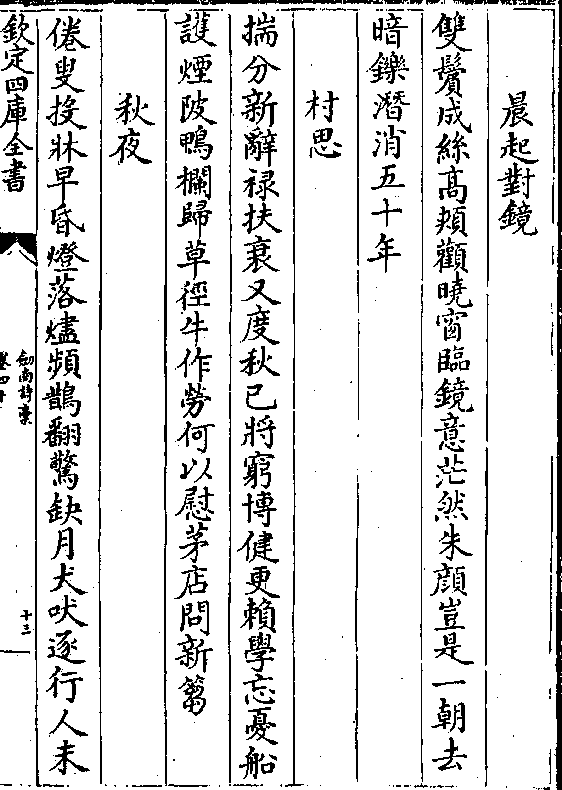 晨起對鏡
雙鬢成絲髙頰顴曉窗臨鏡意茫然朱顔豈是一朝去
暗鑠潛消五十年
村思
揣分新辭禄扶衰又度秋已將窮博健更賴學忘憂船
䕶煙陂鴨欄歸草徑牛作勞何以慰茅店問新篘
秋夜
倦叟投牀早昏燈落燼頻鵲翻驚缺月犬吠逐行人未
欽定四庫全書
劍南詩藁
卷四十
十三